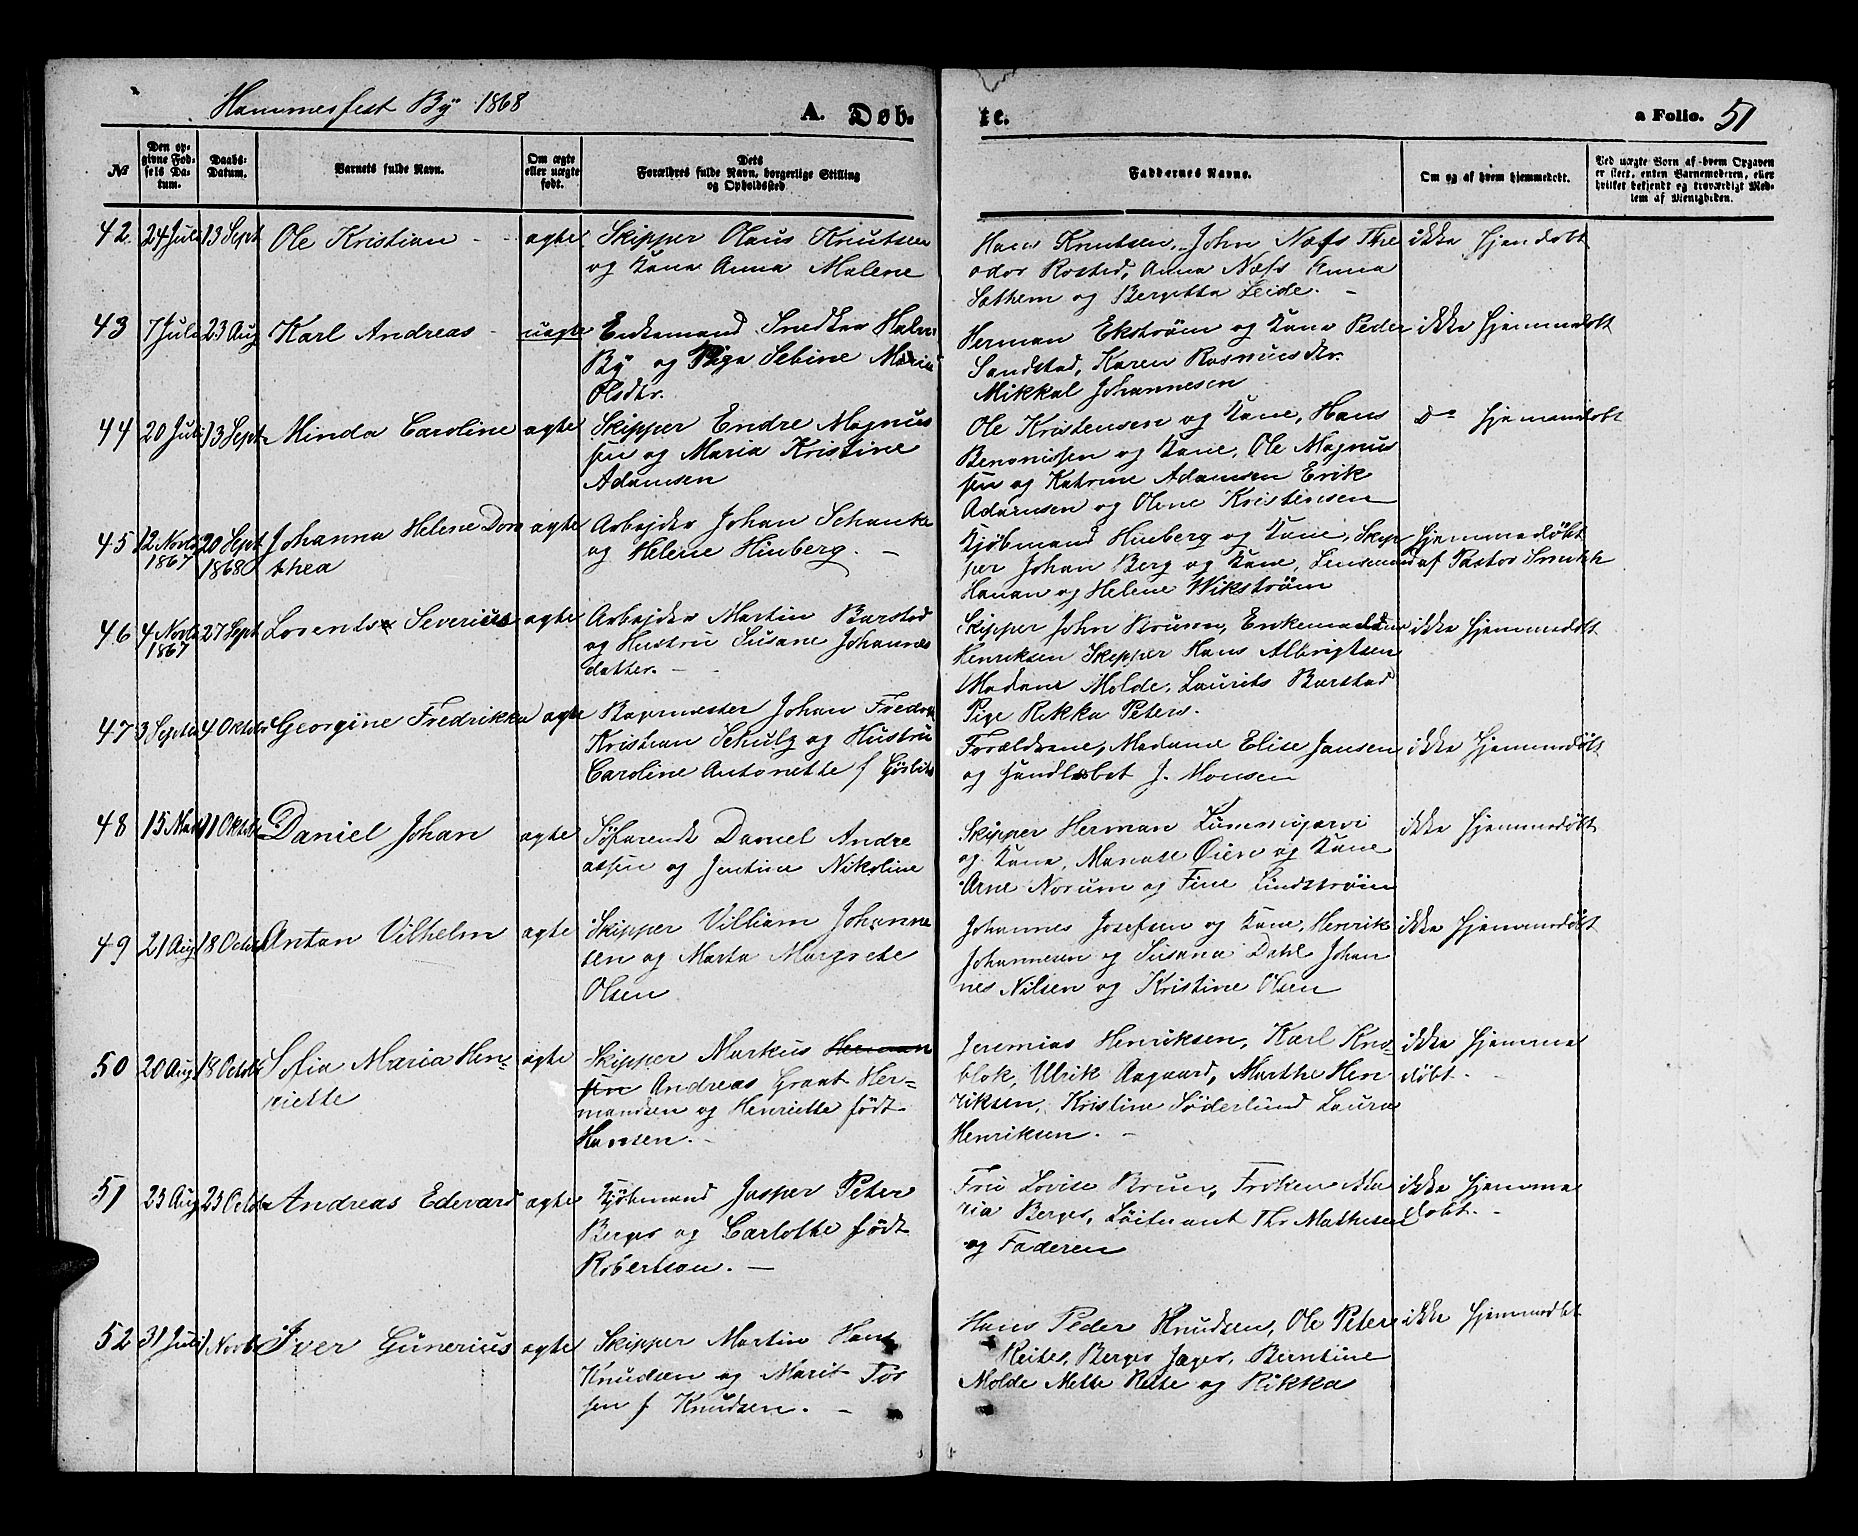 Hammerfest By 1868
A. Døb. te. a Folio. 51
No
Den op-
givne Fød-
sels Da-
tum.
Daabs-
Datum.
Barnets fulde Navn.
Om ægte
eller uægte
født.
Dets
Forældres fulde Navn, borgerlige Stilling
og Opholdssted
Faddernes Navne.
Om og af hvem hjemmedøbt.
Ved uægte Børn af hvem Opgaven
er skeet, enten Barnemoderen, eller
hvilket bekjendt og troværdigt Med-
lem af Menigheden.
42. 24 Juli 13 Sept Ole Kristian - agte Skipper Olaus Knutsen
og Kane Anna Malene
Hans Knutsen, John Næss The
odor Rostad, Anna Næss Anna
Sathem og Bergitta Leide. -
ikke hjemdøbt
43 7 Juli 23 Aug Karl Andreas - uagte Enkemand Snedker
By og Pige Sebine Maria
Olsdtr.
Herman Ekstrøm og Kane Peder
Sandstad, Karen Rasmusdtr.
Mikkal Johannesen
ikke hjemmedøbt
44 20 Juli 13 Sept Minda Caroline agte Skipper Endre Magnus
sen og Maria Kristine
Adamsen
Ole Kristensen og Kane, Hans
Benonissen og Kane, Ole Magnus
sen og Katrine Adamsen Erik
Adamsen og Olene Kristensen
Do hjemmedøbt
45 12 Novbr 1867 20 Sept 1868 Johanna Helene Doro
thea
agte Arbejder Johan Schanke
og Helene Hinberg. -
Kjøbmand Hinberg og Kane, Skip
per Johan Berg og Kane, Lensmand
Hanan og Helene Wikstrøm
hjemmedøbt
af Pastor
46 4 Novbr 1867 27 Sept Lorents Severius agte Arbejder Martin Barstad
og Hustru Susane Johannes
datter. -
Skipper John Bruun, Enkemadame
Henriksen Skipper Hans Albrigtsen
Madame Molde, Laurits Barstad
Pige Rikka Peters.
ikke hjemmedøbt
47 3 Septbr 4 Oktbr Georgine Fredrikka agte Bagermester Johan Fredrik
Kristian Schulz og Hustru
Caroline Antonette f
Forældrene, Madame Elise Jansen
og Handlsbet J. Monsen
ikke hjemmedøbt
48 15 11 Oktbr Daniel Johan agte Søfarende Daniel Andre
assen og Jentine Nikoline
Skipper Herman
og Kane, Manase Øien og Kane
Arne Norum og Fine Lindstrøm
ikke hjemmedøbt
49 21 Aug 18 Octbr Antan Vilhelm agte Skipper Villiam Johanne
sen og Marta Margrete
Olsen
Johannes Josefsen og Kane, Henrik
Johannesen og Susana Dahl Johan
nes Nilsen og Kristine Olsen
ikke hjemmedøbt
50 20 Aug 18 Octbr Sofia Maria Hen-
riette
agte Skipper Markus Herman
sen Andreas Graat Her-
mandsen og Henriette født
Hansen. -
Jeremias Henriksen, Karl Kno-
blok, Ulrik Aagaard, Marthe Hen
riksen, Kristine Søderlund Laura
Henriksen. -
ikke hjemme
døbt. -
51 23 Aug 23 Octbr Andreas Edevard agte Kjøbmand Jasper Peter
Berger og Carlotte født
Robertson. -
Fru Lovise Brun, Frøken Ma
ria Berger, Løitnant Thr Mathesen
og Faderen
ikke hjemme
døbt. -
52 31 Juli 1 Novbr Iver Gunerius agte Skipper Martin Hans
Knudsen og Marit Tor
sen f Knudsen. -
Hans Peder Knudsen, Ole Peter
Reites, Berger Jæger, Berntine
Molde Mette Reite og Rikka
ikke hjemmedøbt